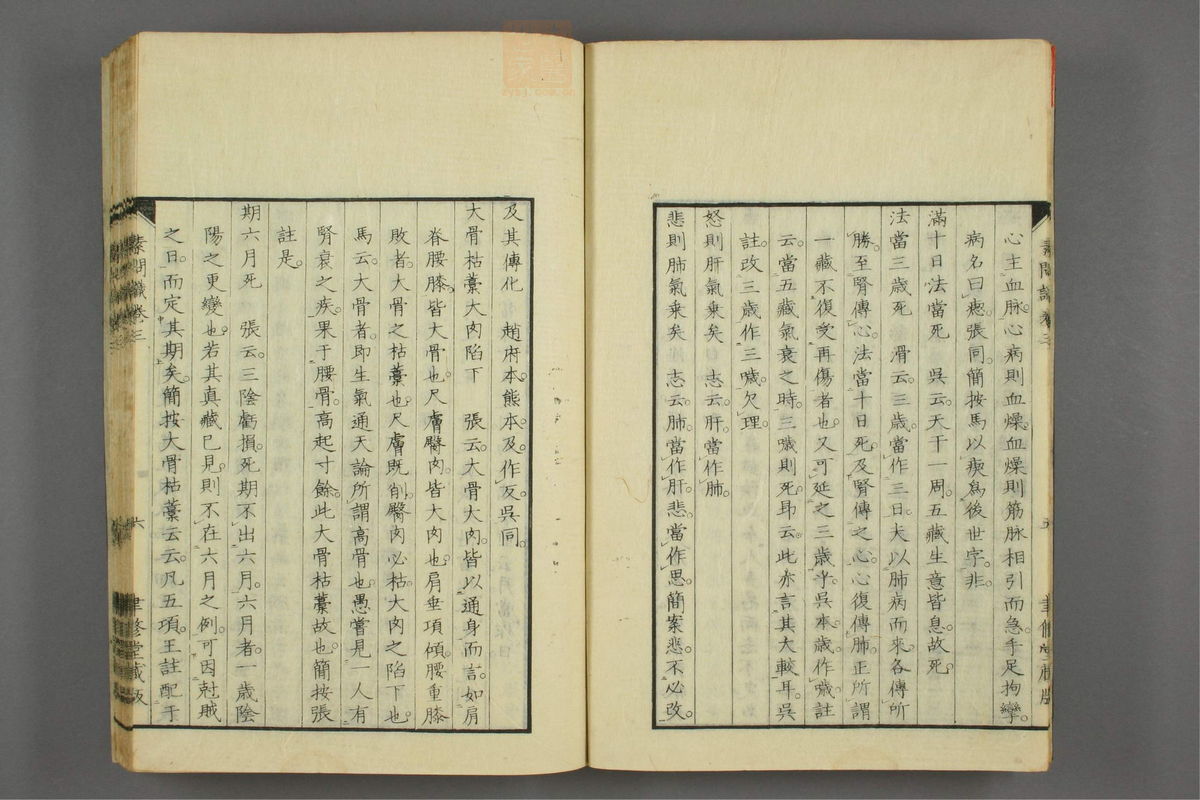 心主血脉。心病則血燥。血燥則筋脉相引而急。手足拘攣。
病名曰瘛。張同。簡按馬以瘈爲後世字。非。
滿十日法當死　吳云。天干一周。五藏生意皆息。故死。
法當三歲死　滑云。三歲。當作三日。夫以肺病而來。各傳所
勝。至腎傳心。法當十日死。及腎傳之心。心復傳肺。正所謂
一藏不復受再傷者也。又可延之三歲乎。吳本。歲作噦。註
云。當五藏氣衰之時。三噦則死。昂云。此亦言其大較耳。吳
註改三歲作三噦。欠理。
怒則肝氣乗矣　志云。肝當作肺。
悲則肺氣乗矣　志云。肺當作肝。悲當作思。簡案悲不必改。
及其傳化　趙府本。熊本。及作反。吳同。
大骨枯藁大肉陷下　張云。大骨大肉。皆以通身而言。如肩
脊腰膝。皆大骨也。尺膚臀肉。皆大肉也。肩垂項傾。腰重膝
敗者。大骨之枯藁也。尺膚既削。臀肉必枯。大肉之陷下也。
馬云。大骨者。即生氣通天論所謂高骨也。愚嘗見一人有
腎衰之疾。果于腰骨。高起寸餘。此大骨枯藁故也。簡按張
註是。
期六月死　張云。三陰虧損。死期不出六月。六月者。一歲陰
陽之更變也。若其真藏已見。則不在六月之例。可因尅賊
之日。而定其期矣。簡按大骨枯藁云云。凡五項。王註配于
素問識卷三
六
聿修堂藏版